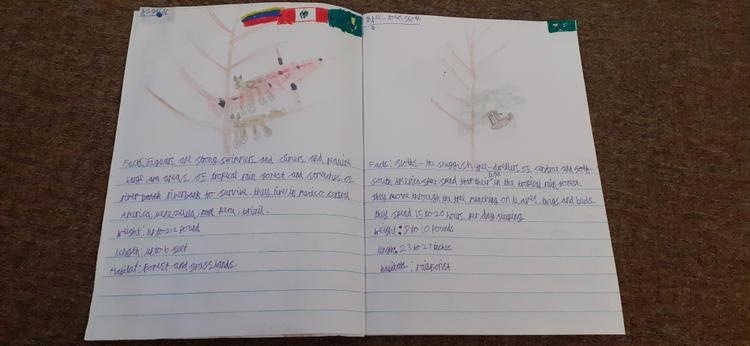 Jaguars
Facts: Jaguars are strong swimmers and climers and require
large are areas of tropical rain forest and stretches of
river bank riverbank to survive. they live in mexico central
America, venezuela, peru, brizil.
Weight: up to 212 pound
Length: up to 6 feet
Habitat: Forest and grasslands
toed sloth
Facts: Sloths - the sluggish tree-dwellers of central and south
south America spend their life in the tropical rain forest.
they move through the tree munching on leaves, twigs and buds.
they spend 15 to 20 hours per day sleeping
Weight: 8 to 10 pounds
length: 23 to 27 inches
habitate: rainforist